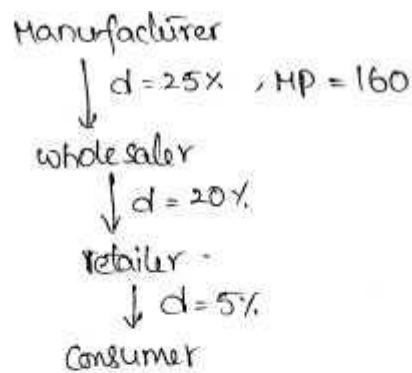 Manufacturer
d = 25% , MP = 160
wholesaler
d = 20%
retailer .
d = 5%
Consumer